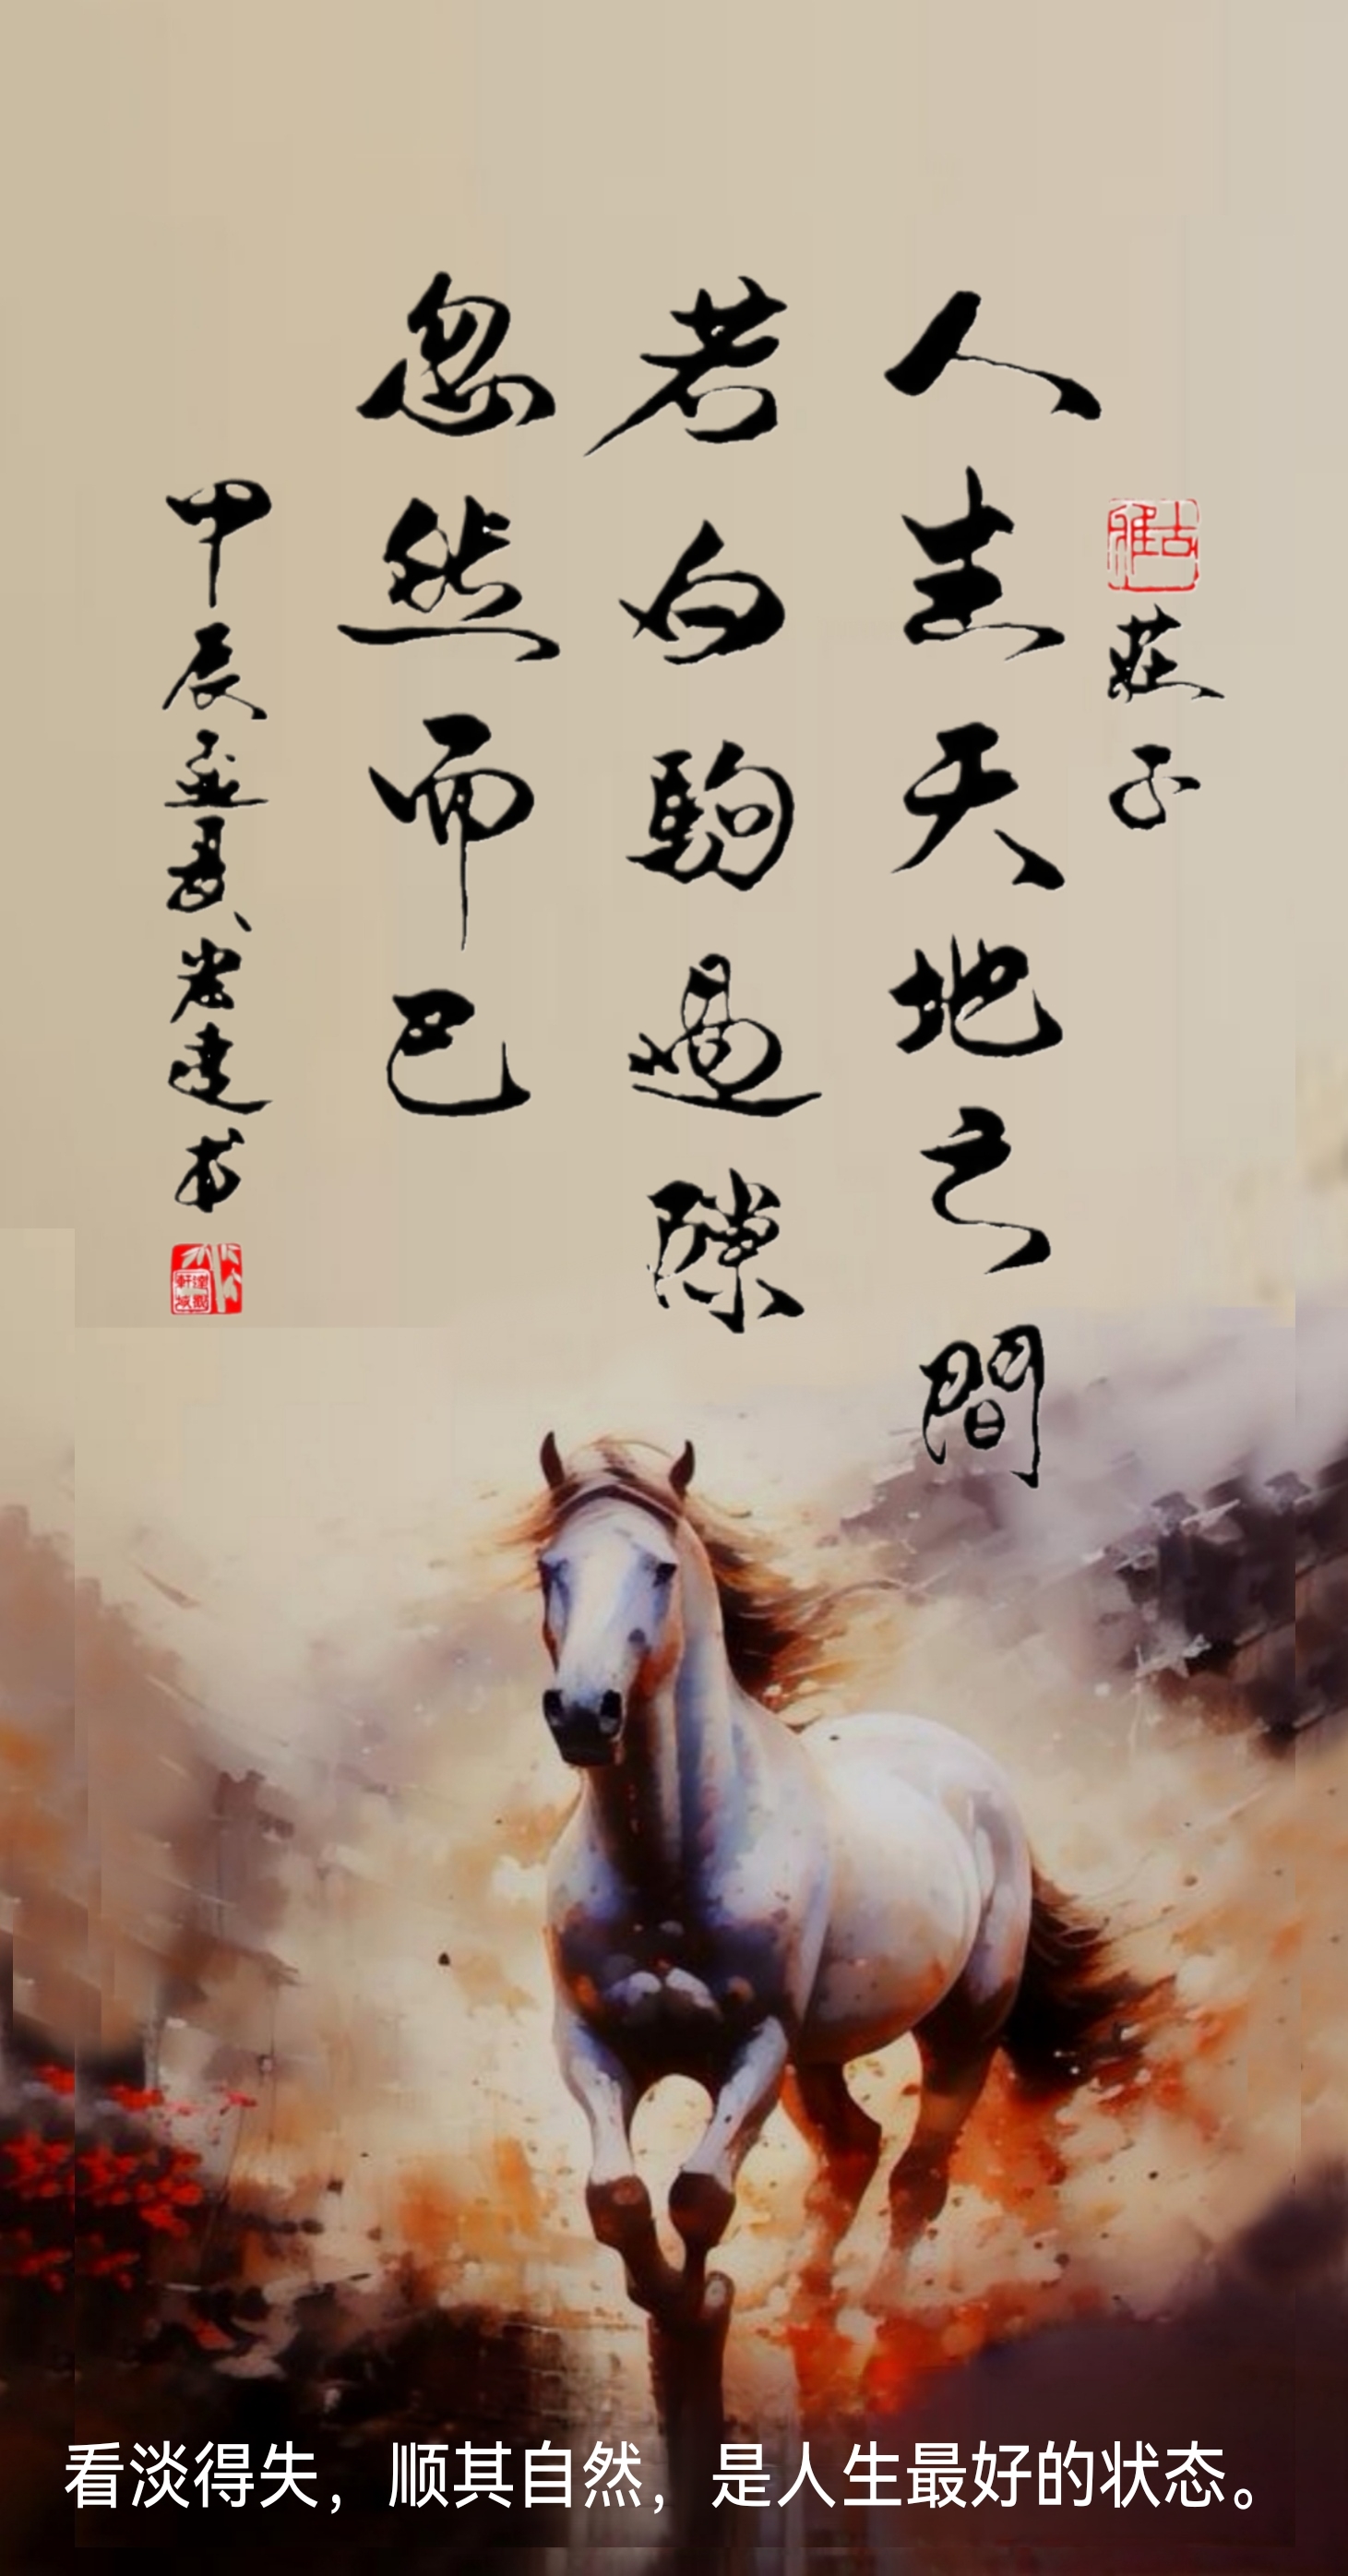 古雅
莊子
人生天地之間
若白駒過隙
忽然而已
甲辰孟夏達書
看淡得失，顺其自然，是人生最好的状态。